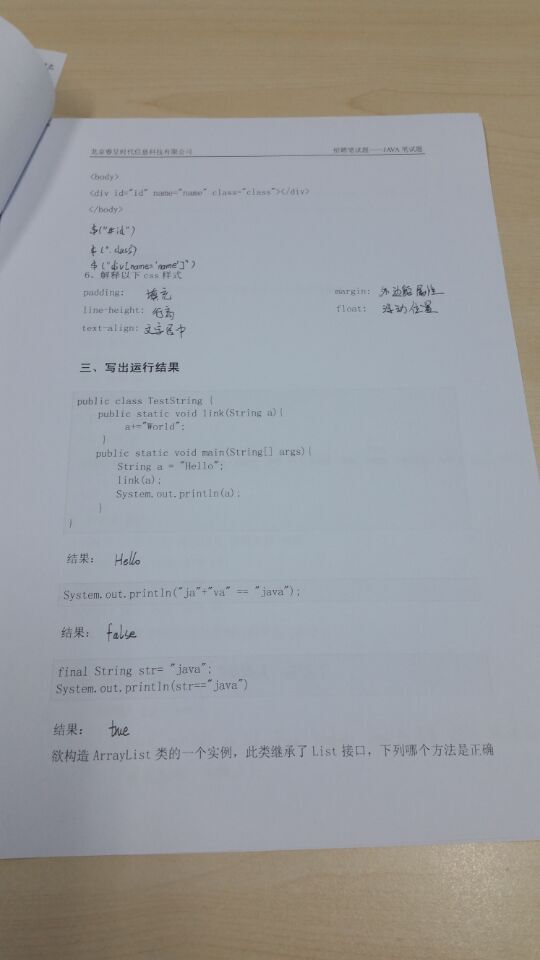 北京睿呈时代信息科技有限公司 招聘笔试题——JAVA 笔试题
<body>
<div id="id" name="name" class="class"></div>
</body>
$("#id")
$(".class)
$("div[name='name']")
6、解释以下 css 样式
padding: 填充 margin: 外边距属性
line-height: 行高 float: 浮动位置
text-align: 文字居中
三、写出运行结果
public class TestString {
public static void link(String a){
a+="World";
}
public static void main(String[] args){
String a = "Hello";
link(a);
System.out.println(a);
}
}
结果: Hello
System.out.println("ja"+"va" == "java");
结果: false
final String str= "java";
System.out.println(str=="java")
结果: true
欲构造 ArrayList 类的一个实例，此类继承了 List 接口，下列哪个方法是正确